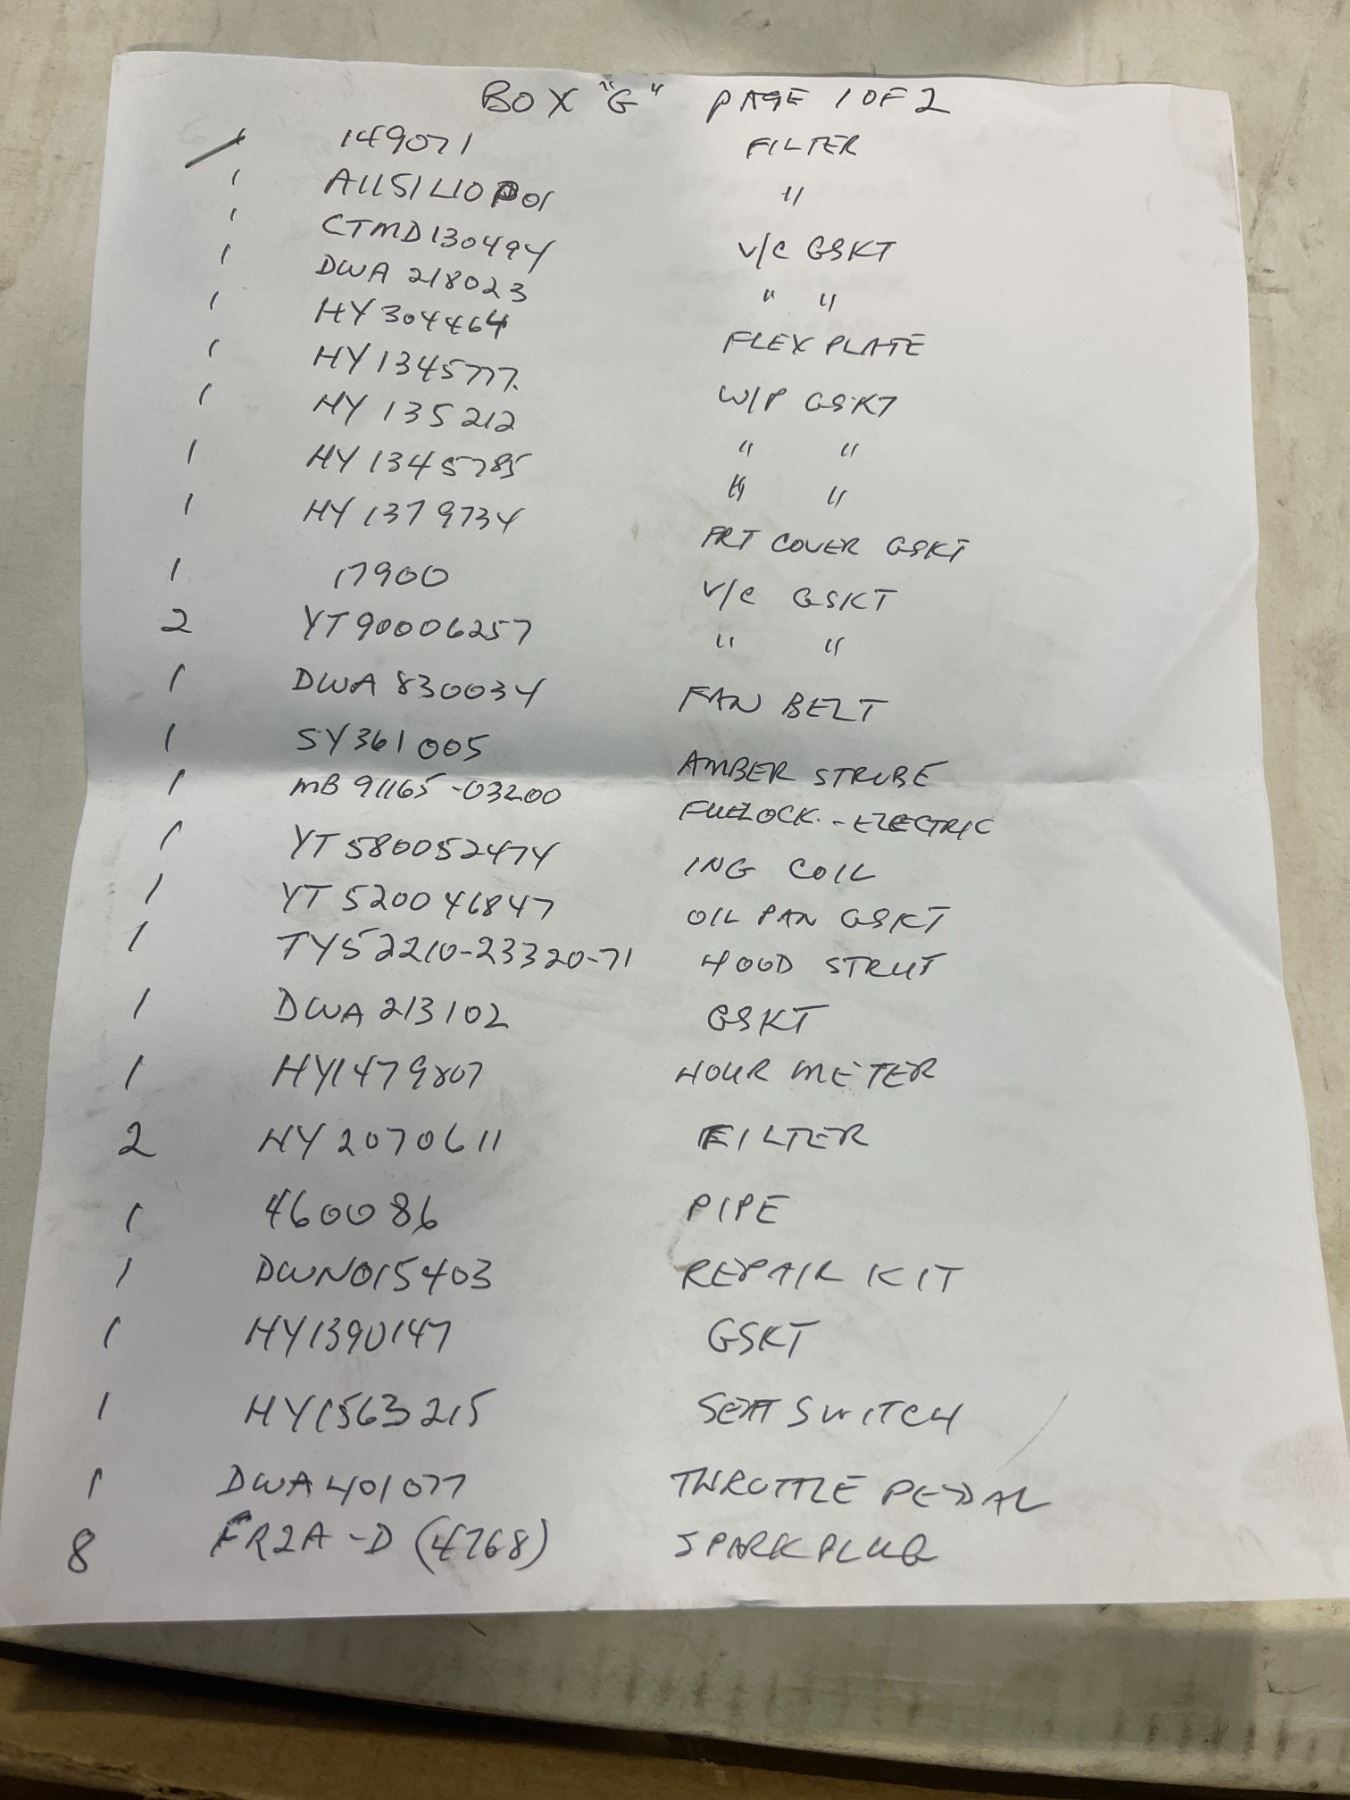 BOX "G" PAGE 1 OF 2
1 149071 FILTER
1 A1151L10P01 "
1 CTMD130494 V/C GSKT
1 DWA 218023 " "
1 HY304464 FLEX PLATE
1 HY1345777 W/P GSKT
1 HY 135212 " "
1 HY 1345785 " "
1 HY 1379734 FRT COVER GSKT
1 17900 V/C GSKT
2 YT90006257 " "
1 DWA 830034 FAN BELT
1 SY361005 AMBER STROBE
1 MB 91165-03200 FUELOCK - ELECTRIC
1 YT 580052474 ING COIL
1 YT 520046847 OIL PAN GSKT
1 TY52210-23320-71 HOOD STRUT
1 DWA 213102 GSKT
1 HY1479807 HOUR METER
2 HY 2070611 FILTER
1 460086 PIPE
1 DWN015403 REPAIR KIT
1 HY1390147 GSKT
1 HY1563215 SEAT SWITCH
1 DWA401077 THROTTLE PEDAL
8 FR2A-D (4768) SPARK PLUG